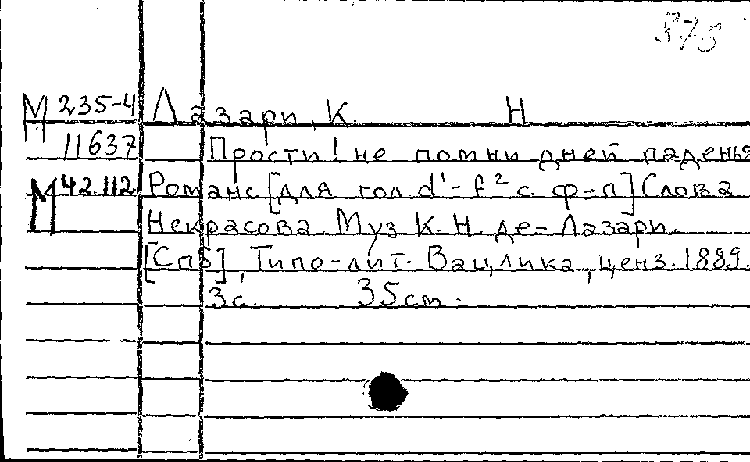 373
М 235-4 Лазари, К. Н
11637 Прости! не помни дней паденья
М 42.112 Романс [для гол. d'-f² с ф-п] Слова
Некрасова Муз К. Н. де-Лазари.
[Спб], Типо-лит. Вацлика, ценз. 1889.
3с. 35cm.